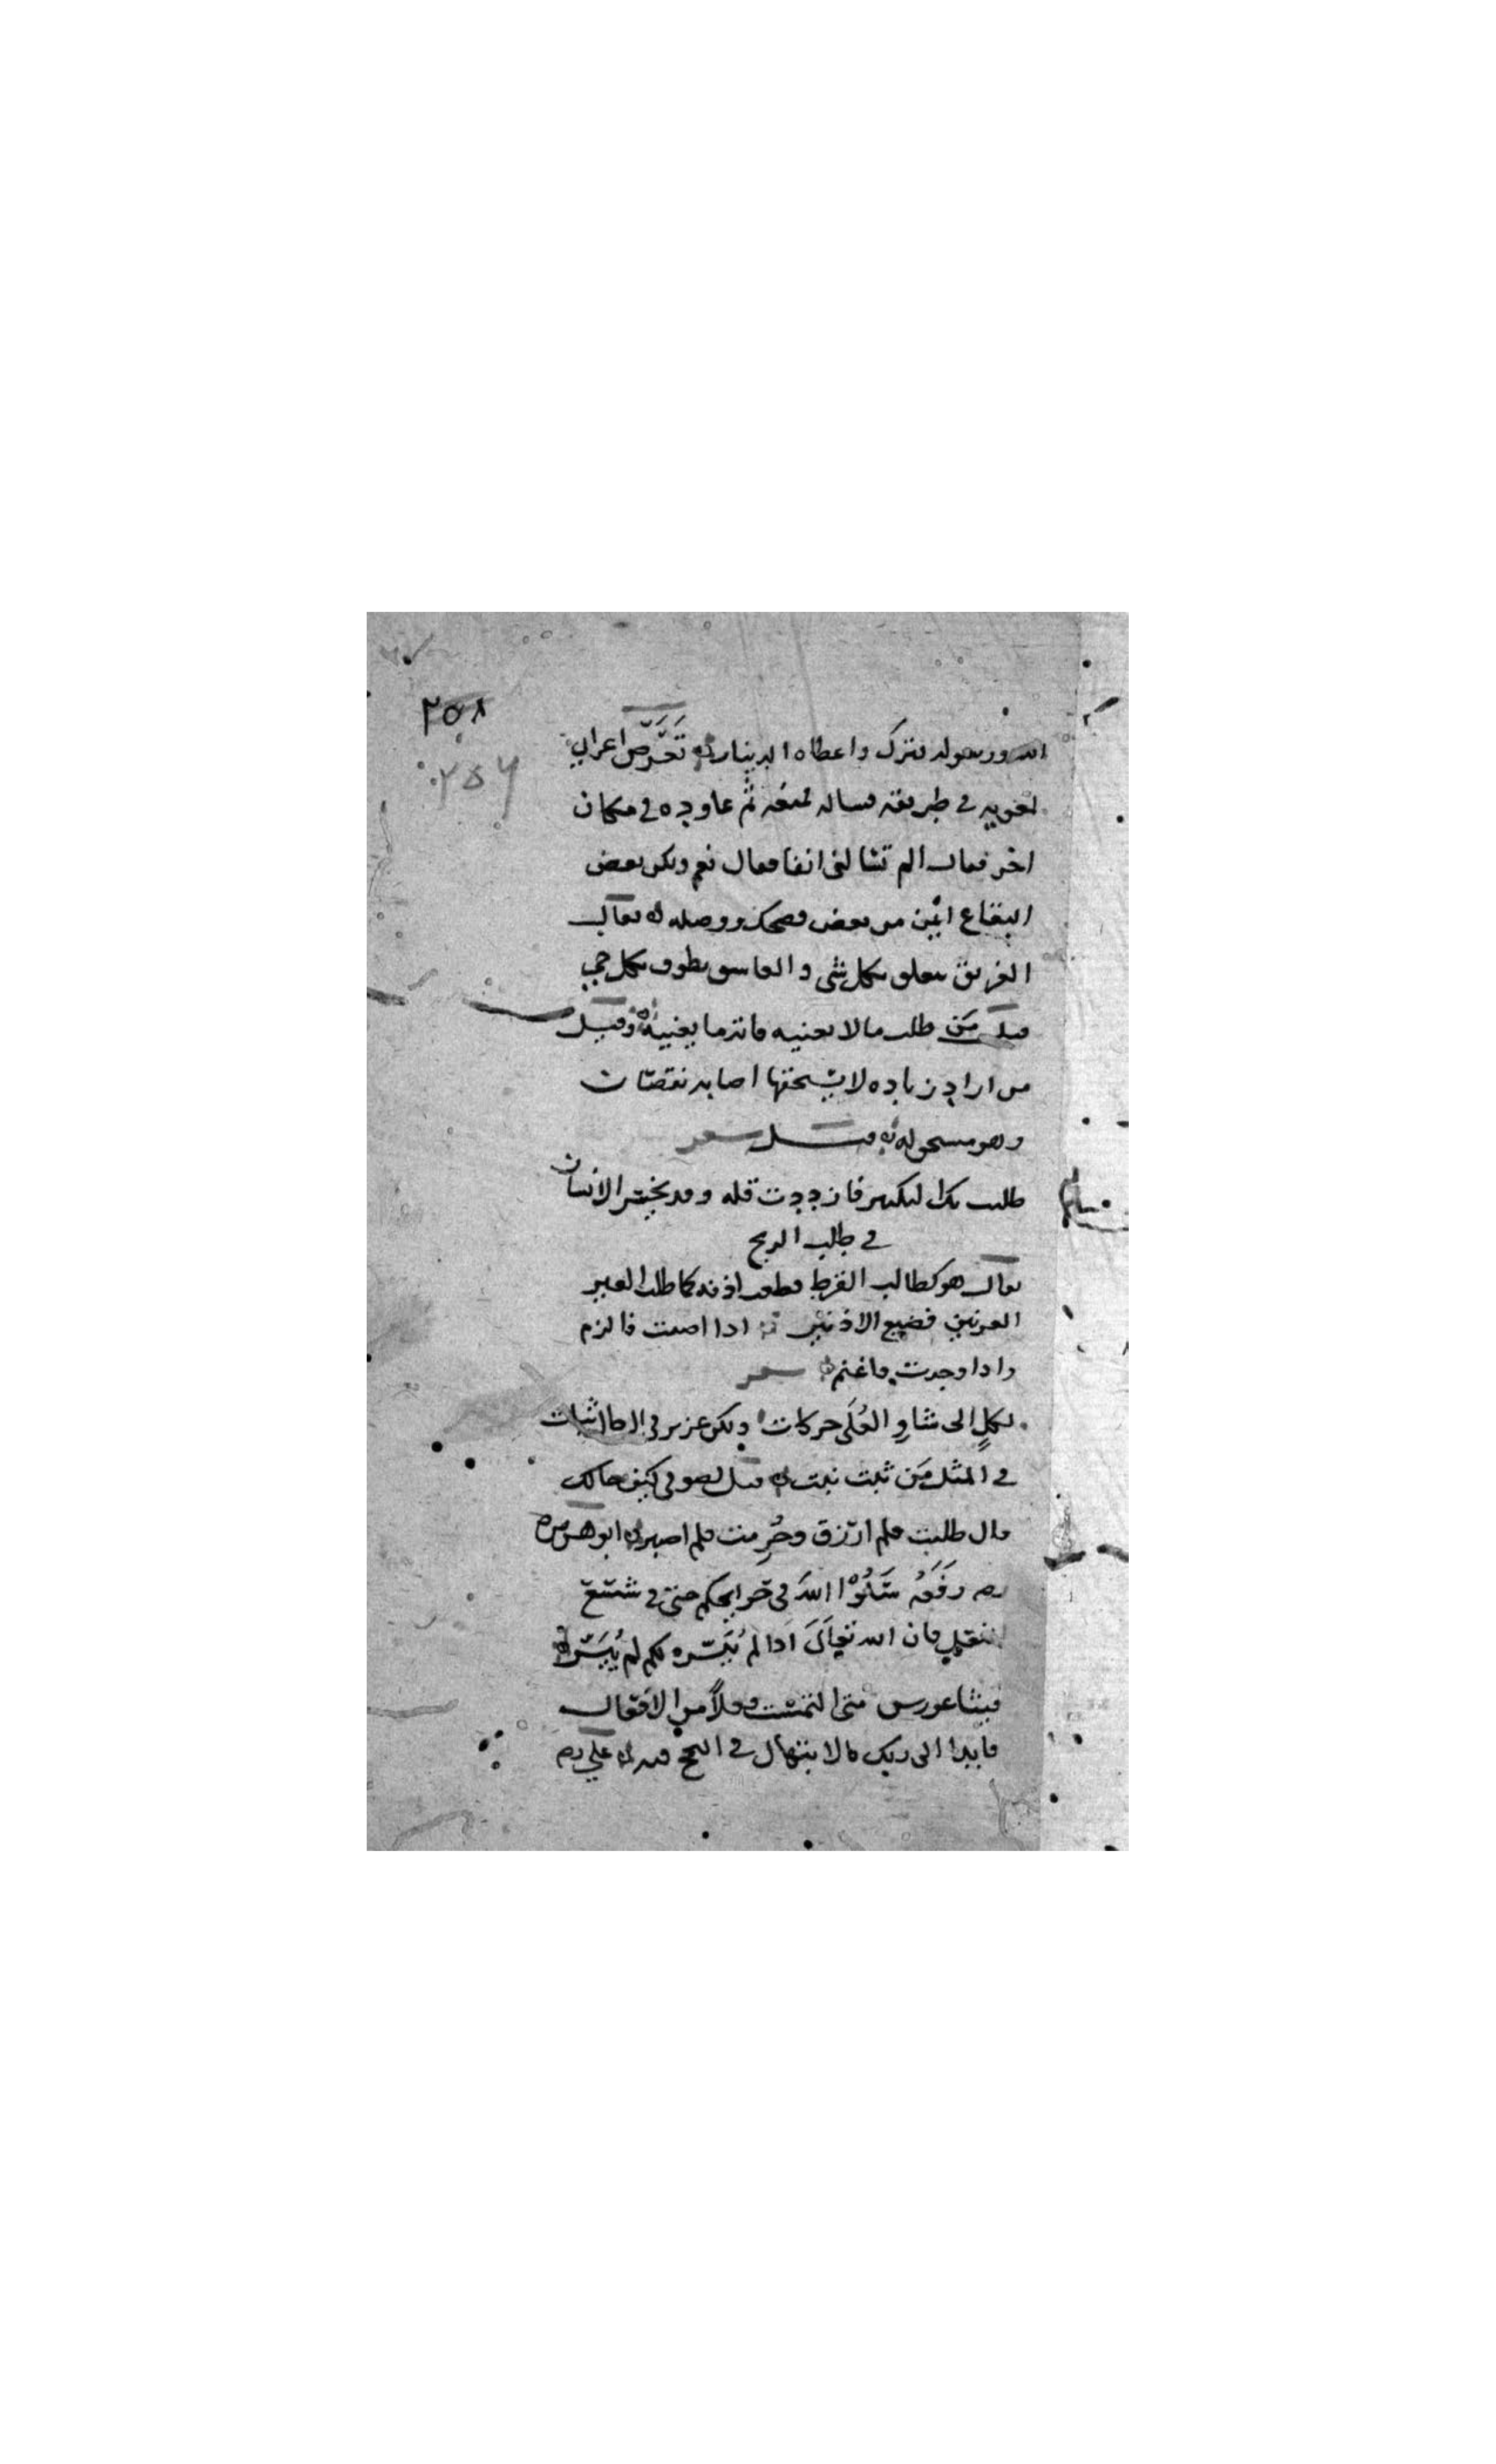 ٢٥٨
٢٥٦
الله ورسوله فنزل واعطاه الدينار تَعَرَّض اعرابي
لمعويه في طريقه فساله فمنعه ثم عاوده في مكان
اخر فقال الم تسالني انفا فقال نعم ولكن بعض
البقاع ايمن من بعض فضحك ووصله يقال
الغريق يتعلق بكل شي والعاشق يطوف بكل حي
قيل مَن طلب مالا يعنيه فاته ما يعنيه وقيل
من اراد زياده لا يستحقها اصابه نقصان
وهو مستحق له قيل شعر
طلبت بك التكثير فازددت قله وقد يخسر الانسان
في طلب الربح
يقال هو كطالب القرط فقطعت اذنه كما طلب العير
القرنين فضيع الاذنين اذا اصبت فالزم
واذا وجدت فاغنم شعر
لكلٍ الى شاوِ العُلَى حركات ولكن عزيز في الرجال ثبات
في المثل مَن ثبت نبت قيل لصوفي كيف حالك
قال طلبت فلم ارزق وحُرِمت فلم اصبر ابو هريره
رضه رَفَعَه سَلُوْا اللهَ في حوايجكم حتى في شسع
النعل فان الله تعالَى اذا لم يُيَسّره لكم لم يُيَسّر
فيثاغورس متى التمست فعلاً من الافعال
فابدا الى ربك بالابتهال في النجح فيه علي رضه